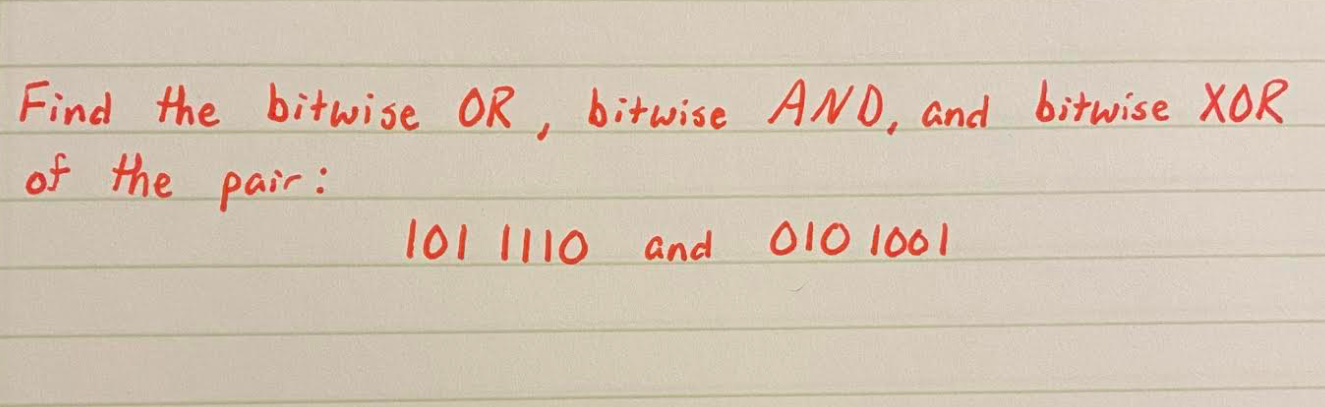 Find the bitwise OR, bitwise AND, and bitwise XOR
of the pair:
101 1110 and 010 1001